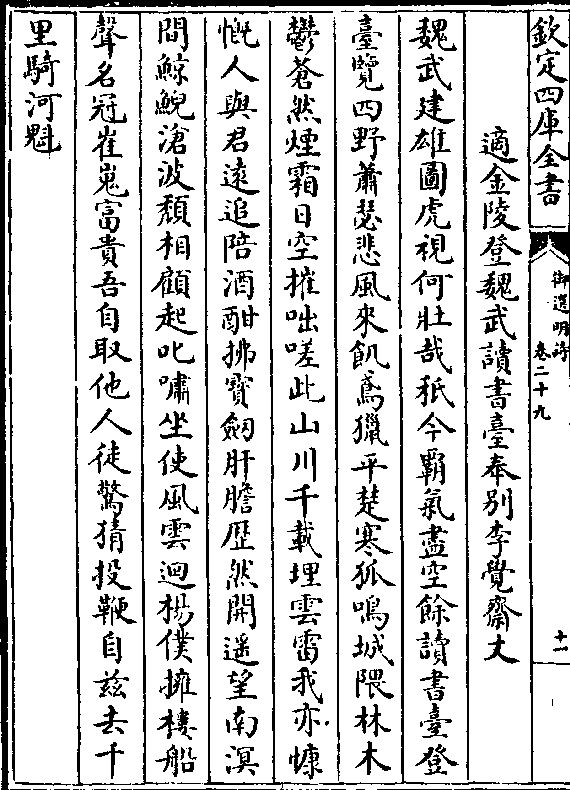 欽定四庫全書
御選明詩
卷二十九
十一
適金陵登魏武讀書臺奉別李覺齋丈
魏武建雄圖虎視何壯哉秖今霸氣盡空餘讀書臺登
臺覽四野蕭瑟悲風來飢鳶獵平楚寒狐鳴城隈林木
鬱蒼然煙霜日空摧咄嗟此山川千載埋雲雷我亦慷
慨人與君遠追陪酒酣拂寶劒肝膽歴然開遥望南溟
間鯨鯢滄波頽相顧起叱嘯坐使風雲迴楊僕擁樓船
聲名冠崔嵬富貴吾自取他人徒驚猜投鞭自兹去千
里騎河魁